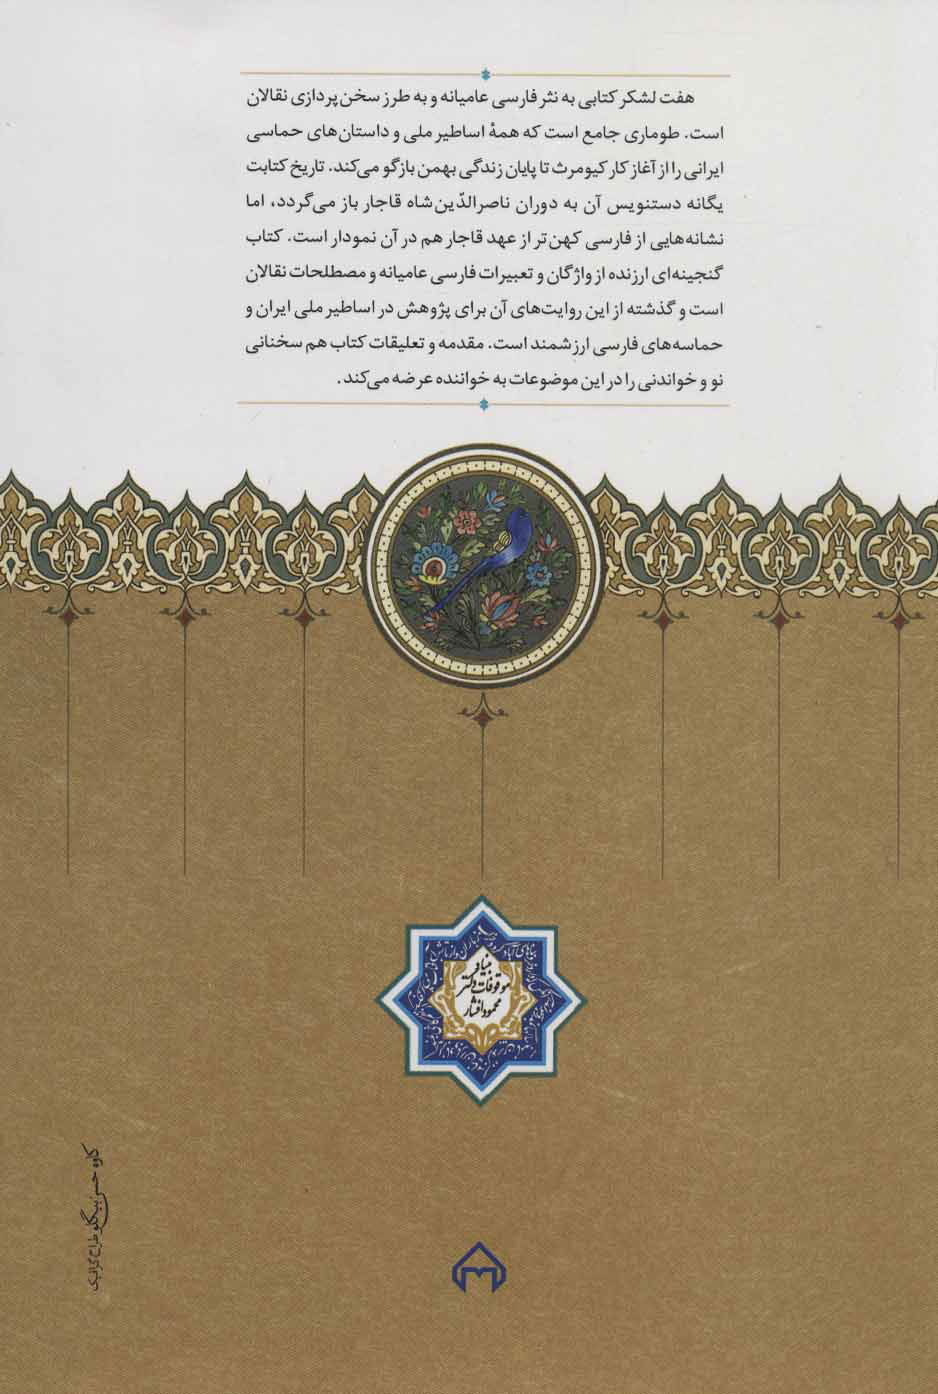 هفت لشکر کتابی به نثر فارسی عامیانه و به طرز سخن‌پردازی نقالان
است. طوماری جامع است که همهٔ اساطیر ملی و داستان‌های حماسی
ایرانی را از آغاز کار کیومرث تا پایان زندگی بهمن بازگو می‌کند. تاریخ کتابت
یگانه دستنویس آن به دوران ناصرالدّین‌شاه قاجار باز می‌گردد، اما
نشانه‌هایی از فارسی کهن‌تر از عهد قاجار هم در آن نمودار است. کتاب
گنجینه‌ای ارزنده از واژگان و تعبیرات فارسی عامیانه و مصطلحات نقالان
است و گذشته از این روایت‌های آن برای پژوهش در اساطیر ملی ایران و
حماسه‌های فارسی ارزشمند است. مقدمه و تعلیقات کتاب هم سخنانی
نو و خواندنی را در این موضوعات به خواننده عرضه می‌کند.
بنیاد
موقوفات دکتر
محمود افشار
کاوه حسن‌بیگلو طراح گرافیک